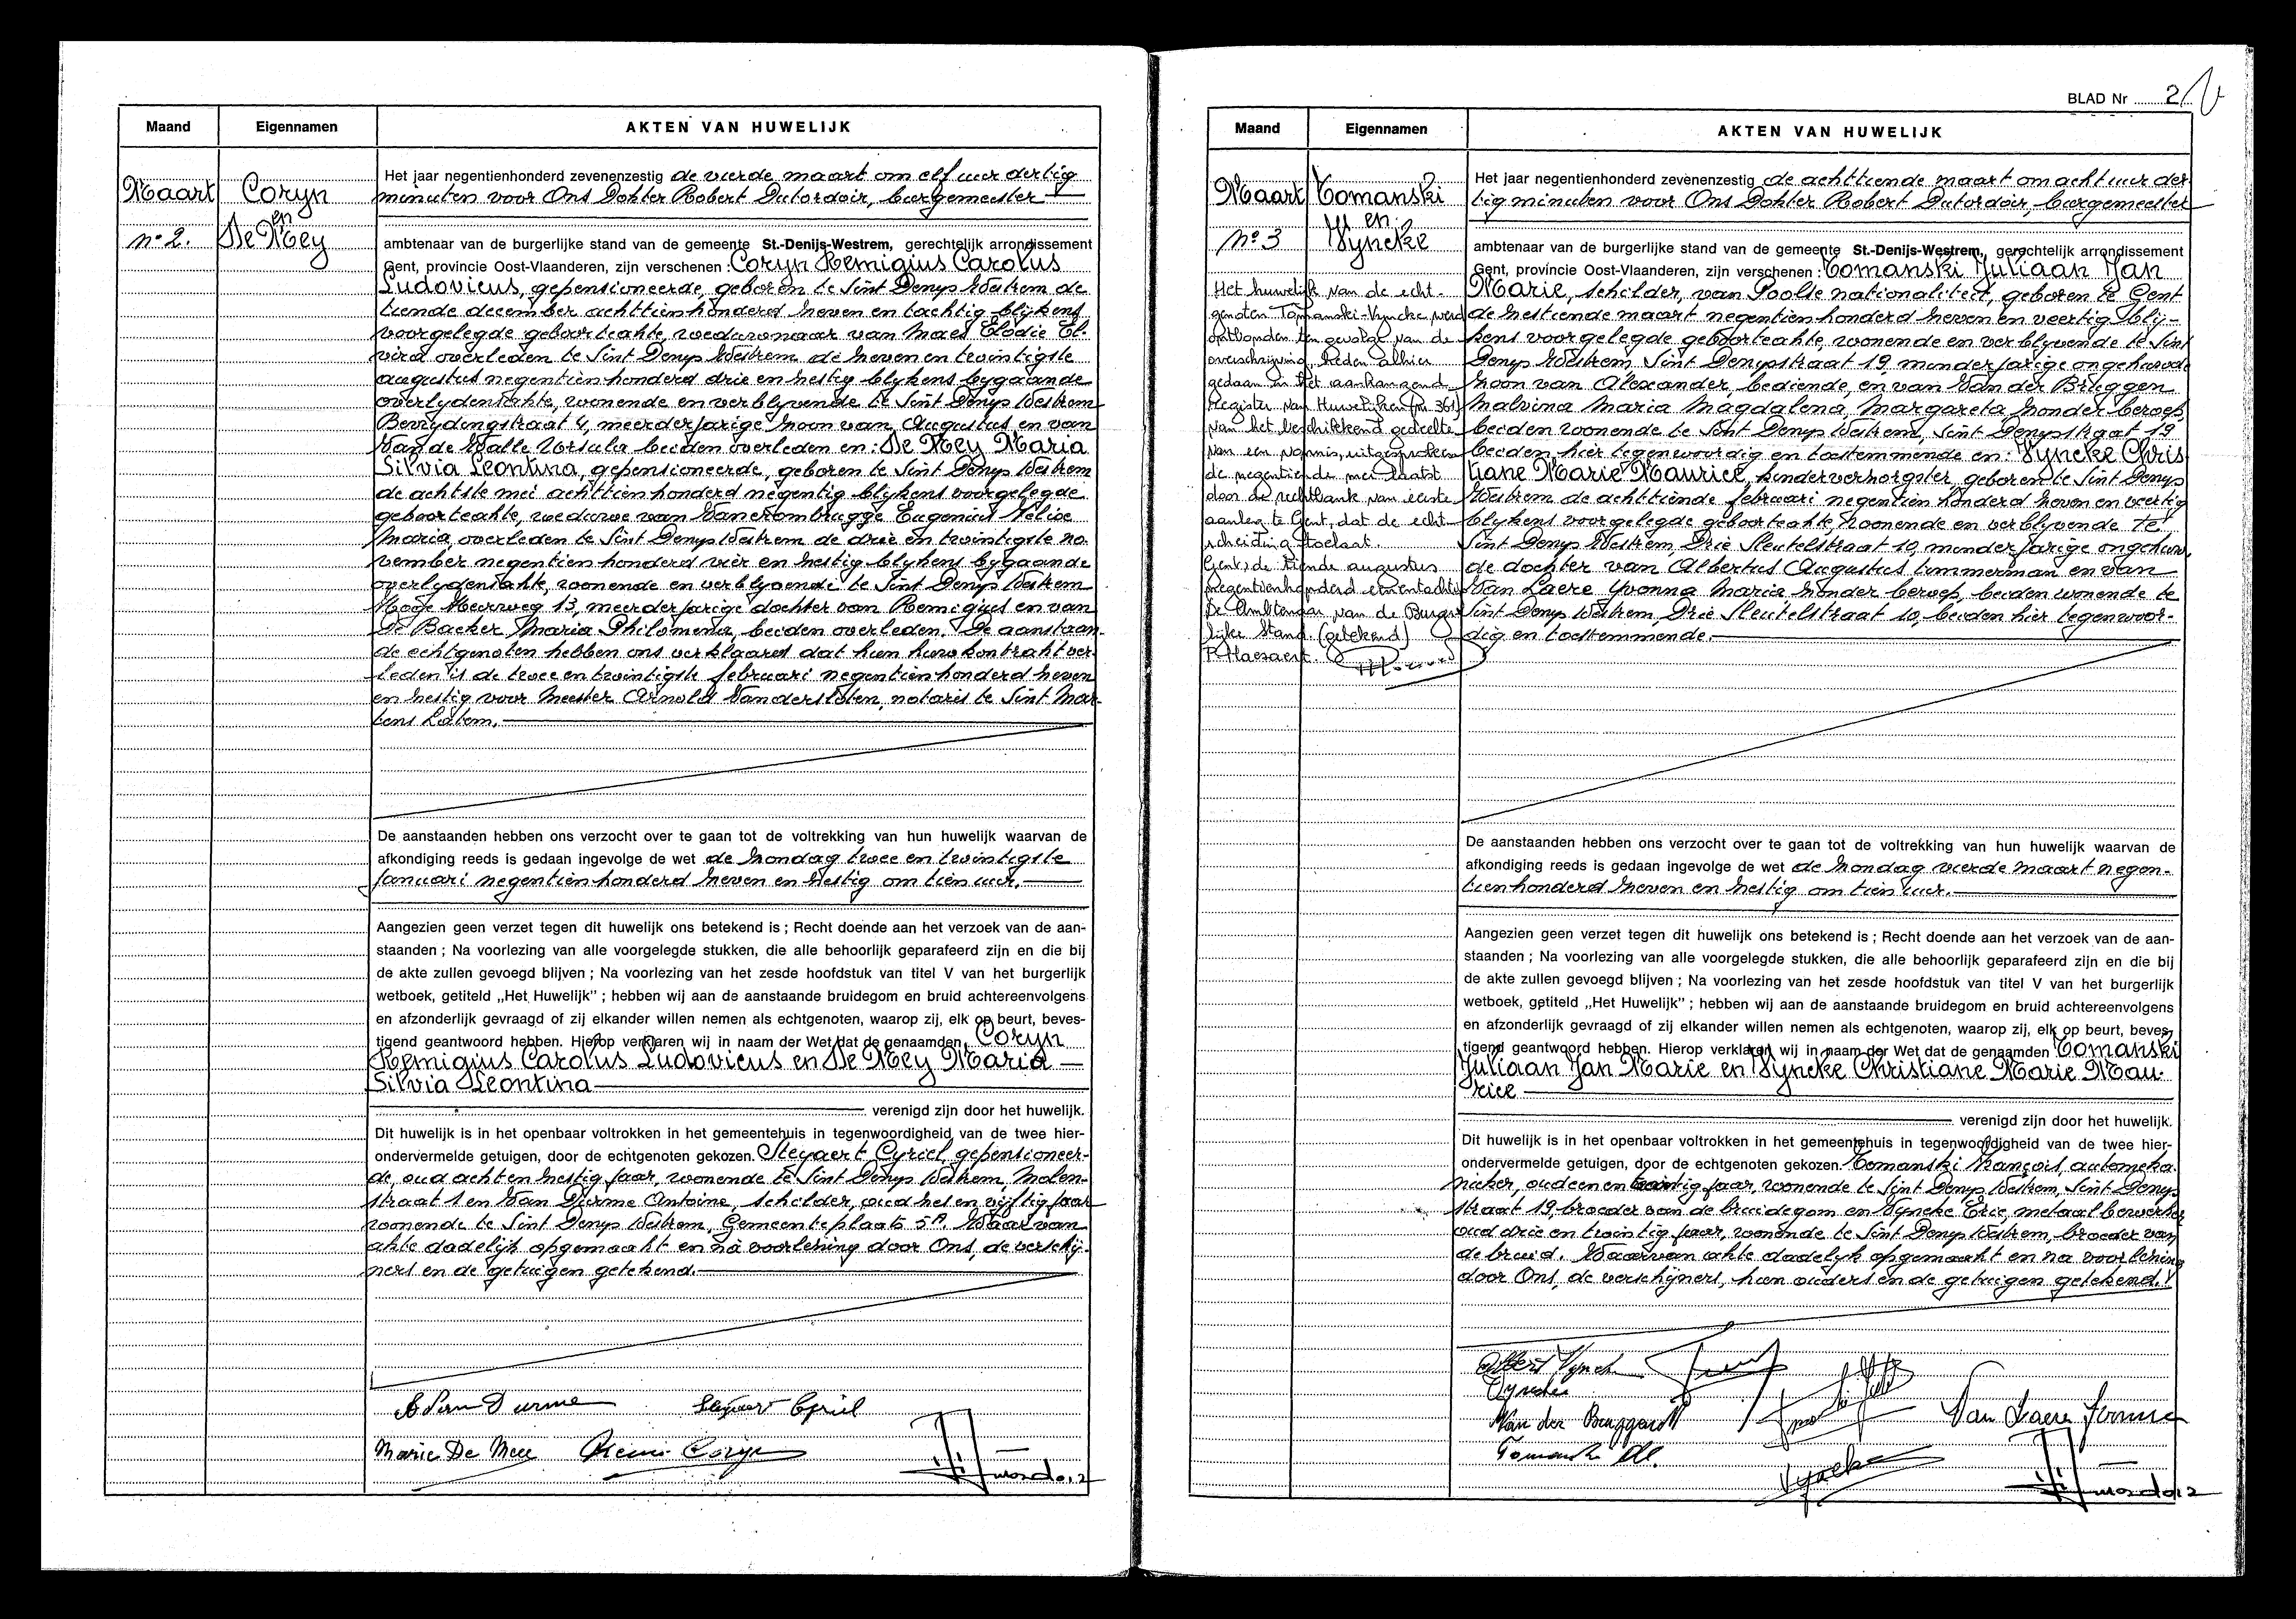 Maand
Eigennamen
AKTEN VAN HUWELIJK
Maart
Coryn
en
De Mey
nº 2.
Het jaar negentienhonderd zevenenzestig de vierde maart om elf uur dertig
minuten voor Ons Dokter Robert Dutordoir, burgemeester
ambtenaar van de burgerlijke stand van de gemeente St.-Denijs-Westrem, gerechtelijk arrondissement
Gent, provincie Oost-Vlaanderen, zijn verschenen : Coryn Remigius Carolus
Ludovicus, gepensioneerde, geboren te Sint Denys Westrem de
tiende december achttienhonderd zeven en tachtig blijkens
voorgelegde geboorteakte, weduwnaar van Maes Elodie El-
vira overleden te Sint Denys Westrem de zeven en twintigste
augustus negentienhonderd drie en zestig blykens bygaande
overlydensakte, wonende en verblyvende te Sint Denys Westrem
Bevrydingstraat 4, meerderjarige zoon van Augustus en van
Van de Walle Ursula beiden overleden en: De Mey Maria
Silvia Leontina, gepensioneerde, geboren te Sint Denys Westrem
de achtste mei achttienhonderd negentig blykens voorgelegde
geboorteakte, weduwe van Vanerombrugge Eugenius Felix
Maria, overleden te Sint Denys Westrem de drie en twintigste no-
vember negentienhonderd vier en zestig blykens bygaande
overlydensakte, wonende en verblyvende te Sint Denys Westrem
Hoge Heerweg 13, meerderjarige dochter van Remigius en van
De Backer Maria Philomena, beiden overleden. De aanstaan-
de echtgenoten hebben ons verklaard dat hun huwkontrakt ver-
leden is de twee en twintigste februari negentienhonderd zeven
en zestig voor Meester Arnold Vanderstoten, notaris te Sint Mar-
tens Latem.
De aanstaanden hebben ons verzocht over te gaan tot de voltrekking van hun huwelijk waarvan de
afkondiging reeds is gedaan ingevolge de wet de zondag twee en twintigste
januari negentienhonderd zeven en zestig om tien uur.
Aangezien geen verzet tegen dit huwelijk ons betekend is ; Recht doende aan het verzoek van de aan-
staanden ; Na voorlezing van alle voorgelegde stukken, die alle behoorlijk geparafeerd zijn en die bij
de akte zullen gevoegd blijven ; Na voorlezing van het zesde hoofdstuk van titel V van het burgerlijk
wetboek, getiteld „Het Huwelijk" ; hebben wij aan de aanstaande bruidegom en bruid achtereenvolgens
en afzonderlijk gevraagd of zij elkander willen nemen als echtgenoten, waarop zij, elk op beurt, beves-
tigend geantwoord hebben. Hierop verklaren wij in naam der Wet dat de genaamden Coryn
Remigius Carolus Ludovicus en De Mey Maria
Silvia Leontina
verenigd zijn door het huwelijk.
Dit huwelijk is in het openbaar voltrokken in het gemeentehuis in tegenwoordigheid van de twee hier-
ondervermelde getuigen, door de echtgenoten gekozen. Steyaert Cyriel, gepensioneer-
de, oud acht en zestig jaar, wonende te Sint Denys Westrem, Molen-
straat 1 en Van Durme Antoine, schilder, oud zes en vijftig jaar
wonende te Sint Denys Westrem, Gemeenteplaats 5A. Waarvan
akte dadelijk opgemaakt en na voorlezing door Ons, de verschij-
ners en de getuigen getekend.
A Van Durme Steyaert Cyriel
Marie De Mey Remi Coryn
BLAD Nr 2
Maand
Eigennamen
AKTEN VAN HUWELIJK
Maart
Tomanski
en
Vyncke
nº 3
Het huwelijk van de echt-
genoten Tomanski-Vyncke werd
ontbonden ten gevolge van de
overschrijving, heden alhier
gedaan in het aanhangend
Register van Huwelijken (nr 361)
van het beschikkend gedeelte
van een vonnis, uitgesproken
de negentiende mei laatst
door de rechtbank van eerste
aanleg te Gent, dat de echt-
scheiding toelaat.
Gent, de tiende augustus
negentienhonderd eenentachtig
De Ambtenaar van de Burger-
lijke Stand (getekend)
P. Haesaert.
Het jaar negentienhonderd zevenenzestig de achttiende maart om acht uur der
tig minuten voor Ons Dokter Robert Dutordoir, burgemeester
ambtenaar van de burgerlijke stand van de gemeente St.-Denijs-Westrem, gerechtelijk arrondissement
Gent, provincie Oost-Vlaanderen, zijn verschenen : Tomanski Juliaan Jan
Marie, schilder, van Poolse nationaliteit, geboren te Gent
de zestiende maart negentienhonderd zeven en veertig blij-
kens voorgelegde geboorteakte, wonende en verblyvende te Sint
Denys Westrem, Sint Denysstraat 19, minderjarige ongehuwde
zoon van Alexander, bediende, en van Van der Brüggen
Malvina Maria Magdalena, Margareta zonder beroep,
beiden wonende te Sint Denys Westrem, Sint Denysstraat 19
beiden hier tegenwoordig en toestemmende en: Vyncke Chris
tiane Marie Maurice, kinderverzorgster, geboren te Sint Denys
Westrem de achttiende februari negentienhonderd zeven en veertig
blykens voorgelegde geboorteakte, woonende en verblyvende te
Sint Denys Westrem, Drie Sleutelstraat 10, minderjarige ongehuw-
de dochter van Albertus Augustus timmerman en van
Van Laere Yvonna Maria zonder beroep, beiden wonende te
Sint Denys Westrem Drie Sleutelstraat 10, beiden hier tegenwoor-
dig en toestemmende.
De aanstaanden hebben ons verzocht over te gaan tot de voltrekking van hun huwelijk waarvan de
afkondiging reeds is gedaan ingevolge de wet de zondag vierde maart negen-
tienhonderd zeven en zestig om tien uur.
Aangezien geen verzet tegen dit huwelijk ons betekend is ; Recht doende aan het verzoek van de aan-
staanden ; Na voorlezing van alle voorgelegde stukken, die alle behoorlijk geparafeerd zijn en die bij
de akte zullen gevoegd blijven ; Na voorlezing van het zesde hoofdstuk van titel V van het burgerlijk
wetboek, getiteld „Het Huwelijk" ; hebben wij aan de aanstaande bruidegom en bruid achtereenvolgens
en afzonderlijk gevraagd of zij elkander willen nemen als echtgenoten, waarop zij, elk op beurt, beves-
tigend geantwoord hebben. Hierop verklaren wij in naam der Wet dat de genaamden Tomanski
Juliaan Jan Marie en Vyncke Christiane Marie Mau-
rice
verenigd zijn door het huwelijk.
Dit huwelijk is in het openbaar voltrokken in het gemeentehuis in tegenwoordigheid van de twee hier-
ondervermelde getuigen, door de echtgenoten gekozen. Tomanski François, automeka-
nieker, oud een en twintig jaar, wonende te Sint Denys Westrem, Sint Denys
straat 19, broeder van de bruidegom en Vyncke Eric, metaalbewerker
oud drie en twintig jaar, wonende te Sint Denys Westrem, broeder van
de bruid. Waarvan akte dadelyk opgemaakt en na voorlezing
door Ons, de verschijners, hun ouders en de getuigen getekend.
Albert Vyncke
Vyncke
Van der Bruggen M Van Laere Yvonne
Tomanski Al.
Vyncke